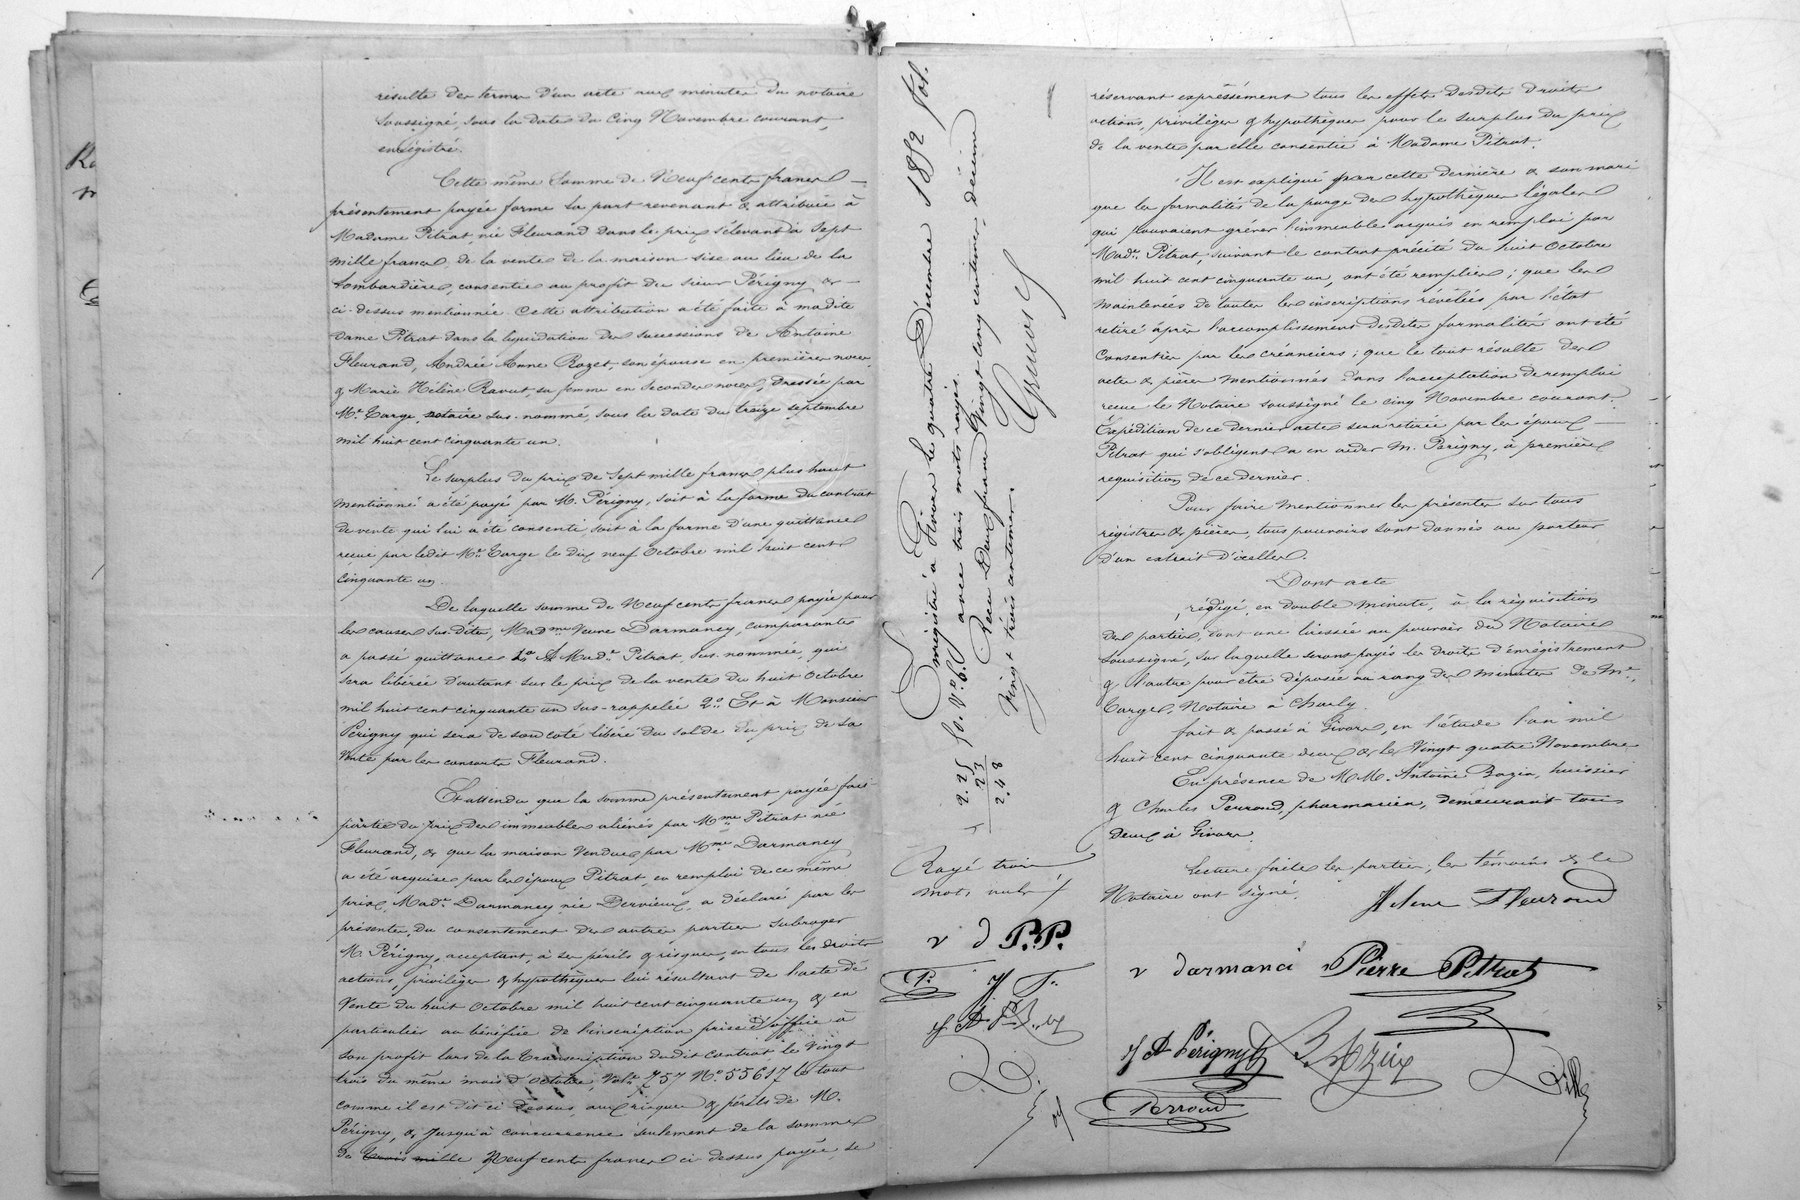 résulte des termes d'un acte aux minutes du notaire
soussigné, sous la date du cinq Novembre courant,
enregistré.
Cette même somme de Neuf cents francs
présentement payée forme la part revenant & attribuée à
Madame Pitrat, née Fleurand dans le prix s'élevant à sept
mille francs, de la vente de la maison sise au lieu de la
Lombardière, consentie au profit du sieur Périgny &
ci-dessus mentionnée. Cette attribution a été faite à madite
Dame Pitrat dans la liquidation des successions de Antoine
Fleurand, Andrée Anne Rozet, son épouse en premières noces
& Marie Hélène Ravut, sa femme en secondes noces, dressée par
Me Targe, notaire sus-nommé, sous la date du treize septembre
mil huit cent cinquante un.
Le surplus du prix de sept mille francs plus haut
mentionné a été payé par M. Périgny, soit à la forme du contrat
de vente qui lui a été consenti, soit à la forme d'une quittance
reçue par ledit Me Targe le dix neuf Octobre mil huit cent
cinquante un.
De laquelle somme de Neuf cents francs payée pour
les causes sus-dites, Madme Veuve Darmancy, comparante
a passé quittance 1o A Made Pitrat, sus-nommée, qui
sera libérée d'autant sur le prix de la vente du huit Octobre
mil huit cent cinquante un sus-rappelée 2o Et à Monsieur
Périgny qui sera de son coté libéré du solde du prix de sa
vente par les consorts Fleurand.
Et attendu que la somme présentement payée fait
partie du prix des immeubles aliénés par Mme Pitrat née
Fleurand, & que la maison vendue par Mme Darmancy
a été acquise par les époux Pitrat, en remploi de ce même
prix, Made Darmancy née Dervieux, a déclaré par les
présentes, du consentement des autres parties subroger
M. Périgny, acceptant, à ses périls & risques, en tous les droits
actions, privilèges & hypothèques lui résultant de l'acte de
vente du huit Octobre mil huit cent cinquante un & en
particulier au bénéfice de l'inscription prise d'office à
son profit lors de la transcription dudit contrat le vingt
trois du même mois d'Octobre, Vole 757 No 55617 le tout
comme il est dit ci dessus, aux risques & périls de M.
Périgny, & jusqu'à concurrence seulement de la somme
de trois mille Neuf cents francs ci dessus payée, se
Enregistré à Givors le quatre Décembre 1852 fol.
50. Vo. c. 6 avec trois mots rayés.
Reçu Deux francs vingt-cinq centimes, décime
vingt trois centimes.
2.25
23
2.48
Rayé trois
mots nuls
v d P.P.
P.
réservant expressément tous les effets desdits droits
actions, privilèges & hypothèques pour le surplus du prix
de la vente par elle consentie à Madame Pitrat.
Il est expliqué par cette dernière & son mari
que les formalités de la purge des hypothèques légales
qui pouvaient grever l'immeuble acquis en remploi par
Made Pitrat, suivant le contrat précité du huit Octobre
mil huit cent cinquante un, ont été remplies ; que les
mainlevées de toutes les inscriptions révélées par l'état
retiré après l'accomplissement desdites formalités ont été
consenties par les créanciers ; que le tout résulte des
actes & pièces mentionnés dans l'acceptation de remploi
reçue le Notaire soussigné le cinq Novembre courant.
Expédition de ce dernier acte sera retirée par les époux
Pitrat qui s'obligent a en aider M. Périgny, à première
requisition de ce dernier.
Pour faire mentionner les présentes sur tous
régistres & pièces, tous pouvoirs sont donnés au porteur
d'un extrait d'icelles.
Dont acte
rédigé en double minute, à la réquisition
des parties, dont une laissée au pouvoir du Notaire
soussigné, sur laquelle seront payés les droits d'enrégistrement
& l'autre pour être déposée au rang des minutes de Me
Targe, Notaire à Charly.
fait & passé à Givors, en l'étude l'an mil
huit cent cinquante deux & le vingt quatre Novembre
En présence de MM. Antoine Bazin, huissier
& Charles Perroud, pharmacien, demeurant tous
deux à Givors.
Lecture faite les parties, les témoins & le
Notaire ont signé.
Fleurand
v darmanci Pierre Pitrat
Périgny
Perroud